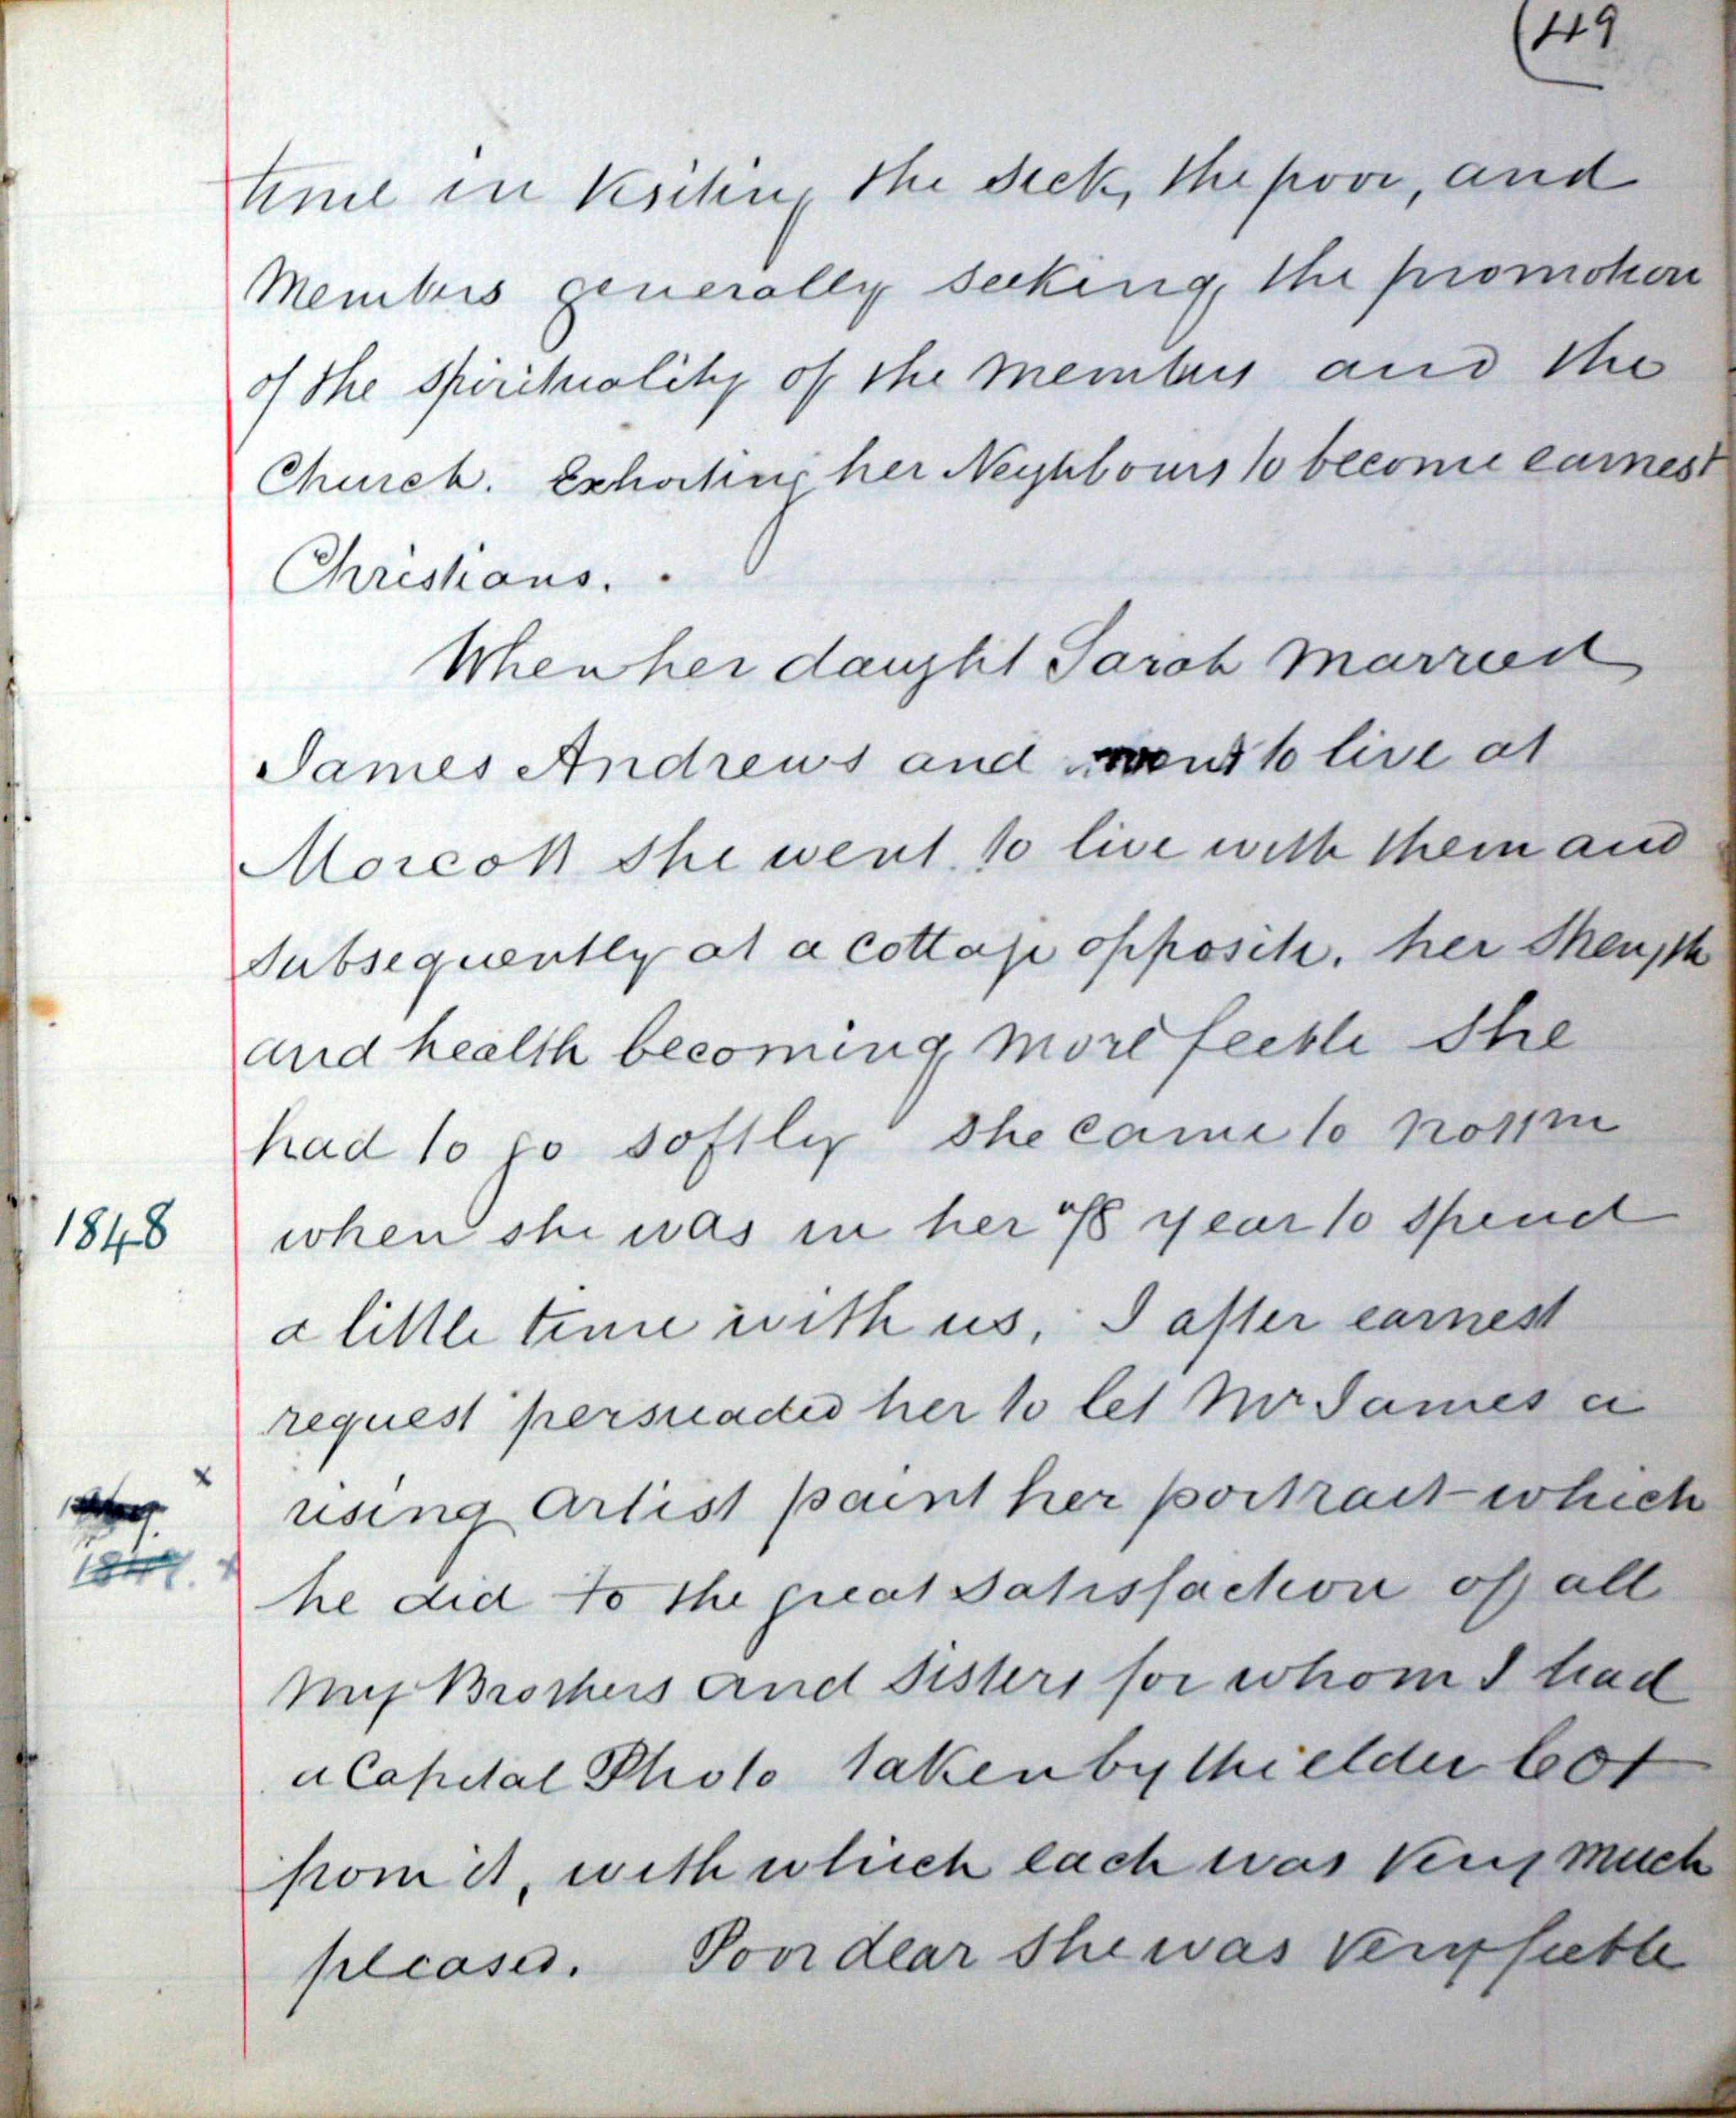 (49
time in visiting the sick, the poor, and
Members generally seeking the promotion
of the spirituality of the members and the
Church. Exhorting her Neighbours to become earnest
Christians.
When her daught Sarah married
James Andrews and went to live at
Morcott she went to live with them and
subsequently at a cottage opposite. her strength
and health becoming more feeble She
had to go softly she came to Nottm
1848
when she was in her 78 year to spend
a little time with us, I after earnest
request persuaded her to let Mr James a
rising Artist paint her portrait which
he did to the great satisfaction of all
my Brothers and Sisters for whom I had
a Capital Photo taken by the elder Cox
from it, with which each was very much
pleased. Poor dear she was very feeble